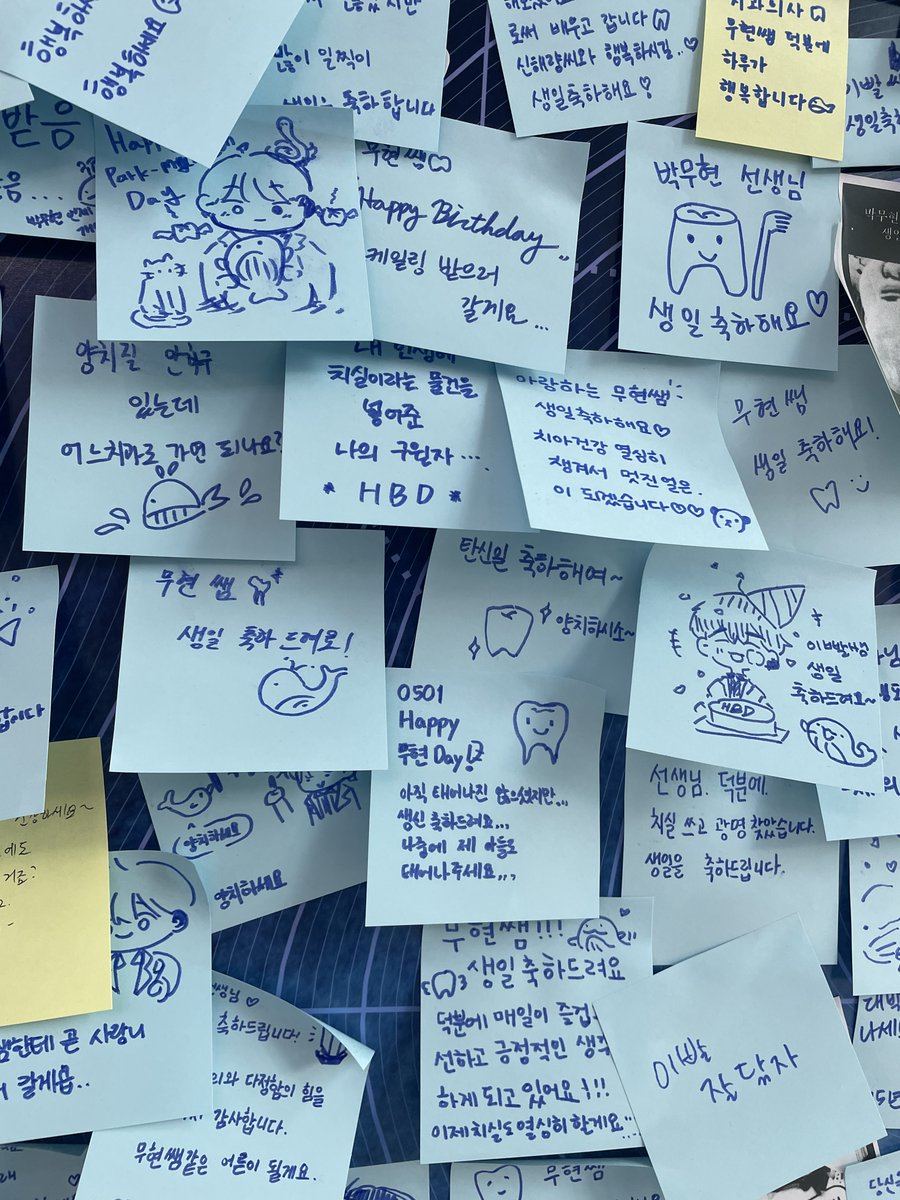 행복하세요
많이 일찍이
생일 축하합니다
로써 배우고 갑니다
신해량씨와 행복하시길..♡
생일축하해요♡
치과의사
무현쌤 덕분에
하루가
행복합니다
이빨
생일축하
받음
Park-mu
Day
무현쌤
Happy Birthday
케일링 받으러
갈게요...
박무현 선생님
생일축하해요♡
박무현
양치질 안하구
있는데
어느치과로 가면 되나요?
내 인생에
치실이라는 물건을
넣어준
나의 구원자...
* HBD *
사랑하는 무현쌤!
생일축하해요♡
치아건강 열심히
챙겨서 멋진 얼은.
이 되겠습니다♡♡
무현쌤
생일 축하해요!
무현 쌤
생일 축하드려요!
탄신일 축하해여~
양치하시소~
이빨쌤
생일
축하드려요~
HBD
0501
Happy
무현 Day!
아직 태어나진 않으셨지만...
생신 축하드려요...
나중에 제 아들로
태어나주세요...
양치하세요
양치하세요
선생님. 덕분에.
치실 쓰고 광명 찾았습니다.
생일을 축하드립니다.
무현쌤!!!
생일축하드려요
덕분에 매일이 즐겁
선하고 긍정적인 생각
하게되고 있어요!!!
이제치실도열심히할게요..
이빨
잘닦자
쌤한테 곧 사랑니
칼게욥..
선생님♡
축하드립니다!
리와 다정함이 힘을
감사합니다.
무현쌤같은 어른이 될게요.
무현쌤